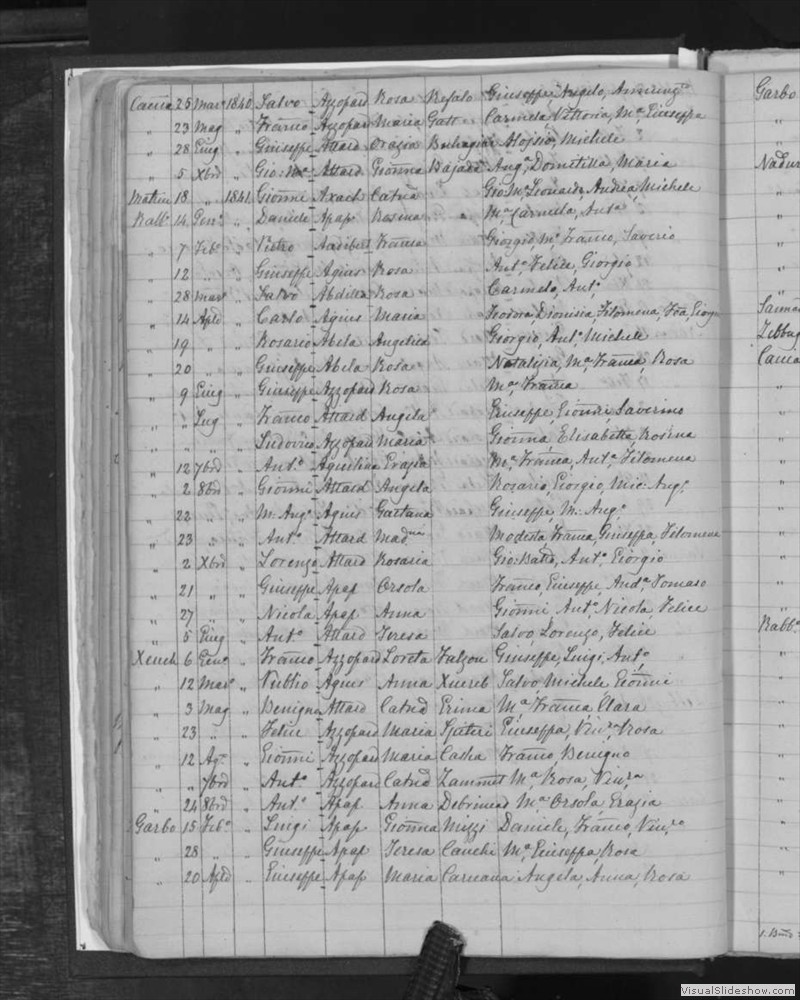 Caccia 25 Mar. 1840 Salvo Azzopard Rosa Refalo Giuseppe, Angelo, Annunz.a
" 23 Mag " Franco Azzopard Maria Gatt Carmela, Vittoria, M.a Giuseppa
" 28 Giug " Giuseppe Attard Orazia Aloisio, Michele
" 5 Xbre " Gio: M.a Attard Gionna Bajada Ang.a, Domitilla, Maria
18 " 1841 Gionni Axach Catna Gio M.a Leonardo, Andrea, Michele
Rabb.o 14 Genn.o " Daniele Apap Rosina " M.a Carmela, Ant.a
" 7 Feb.o " Pietro Franca Giorgio M.a Franco, Saverio
" 12 " " Giuseppe Agius Rosa Ant.o Felice, Giorgio
" 28 Mar. " Salvo Abdilla Rosa Carmelo, Ant.o
" 14 Aple " Carlo Agius Maria Teodora, Dionisia, Filomena,
" 19 " Rosario Abela Angelica Giorgio, Ant.o Michele
" 20 " " Giuseppe Abela Rosa Natalizia, M.a Franca, Rosa
" 9 Giug " Giuseppe Azzopard Rosa M.a Franca
" " Lug " Franco Attard Angela Giuseppe, Gionni, Saverino
" " " Ludovico Azzopard Maria Gionna, Elisabetta, Rosina
" 12 7bre " Ant.o Aquilina Grazia M.a Franca, Ant.a Filomena
" 2 8bre " Gionni Attard Angela Rosario, Giorgio, Mic: Ang.o
" 22 " " M: Ang.o Agius Gaetana Giuseppe, M: Ang.o
" 23 " " Ant.o Attard Mad.na Modesta, Franca, Giuseppa, Filomena
" 2 Xbre " Lorenzo Attard Rosaria Gio: Batta, Ant.o Giorgio
" 21 " " Giuseppe Apap Orsola Franco, Giuseppe, And.a Tomaso
" 27 " " Nicola Apap Anna Gionni Ant.o Nicola, Felice
" 5 Giug " Ant.o Attard Teresa Salvo, Lorenzo, Felice
Xeuch 6 Gen.o " Franco Azzopard Loreta Falzon Giuseppe, Luigi, Ant.o
" 12 Mar.o " Publio Agius Anna Xuereb Salvo Michele Gionni
" 3 Mag " Benigno Attard Catna Erina M.a Franca Clara
" 23 " " Felice Azzopard Maria Spiteri Giuseppa, Vin.a, Rosa
" 12 Ag. " Gionni Azzopard Maria Casha Franco, Benigno
" " 7bre " Ant.o Azzopard Catna Zammit M.a Rosa, Vin.a
" 24 8bre " Ant.o Apap Anna M.a Orsola Grazia
Garbo 15 Feb.o " Luigi Apap Gionna Mizzi Daniele, Franco, Vin.o
" 28 " " Giuseppe Apap Teresa Cauchi M.a Giuseppa, Rosa
" 20 Aple " Giuseppe Apap Maria Caruana Angela, Anna, Rosa
Garbo
Nadur
Zebbug
Caccia
Rabb.o
VisualSlideshow.com